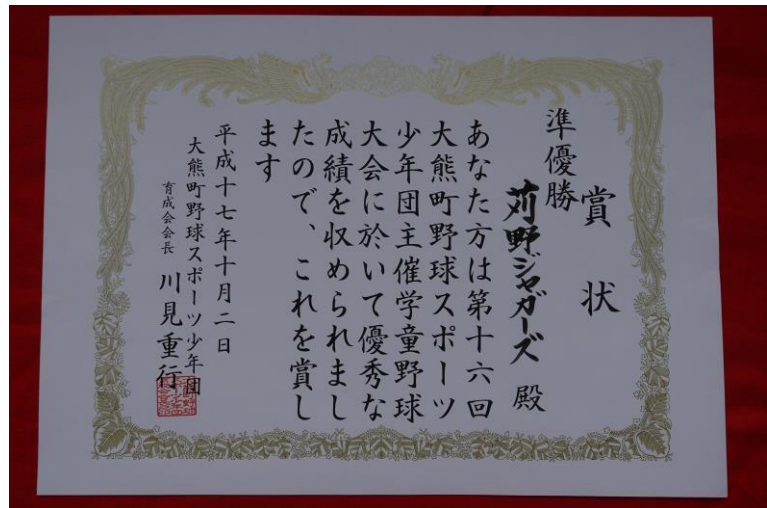 賞状
準優勝
苅野ジャガーズ 殿
あなた方は第十六回
大熊町野球スポーツ
少年団主催学童野球
大会に於いて優秀な
成績を収められまし
たので、これを賞し
ます
平成十七年十月二日
大熊町野球スポーツ少年団
育成会会長 川見重行